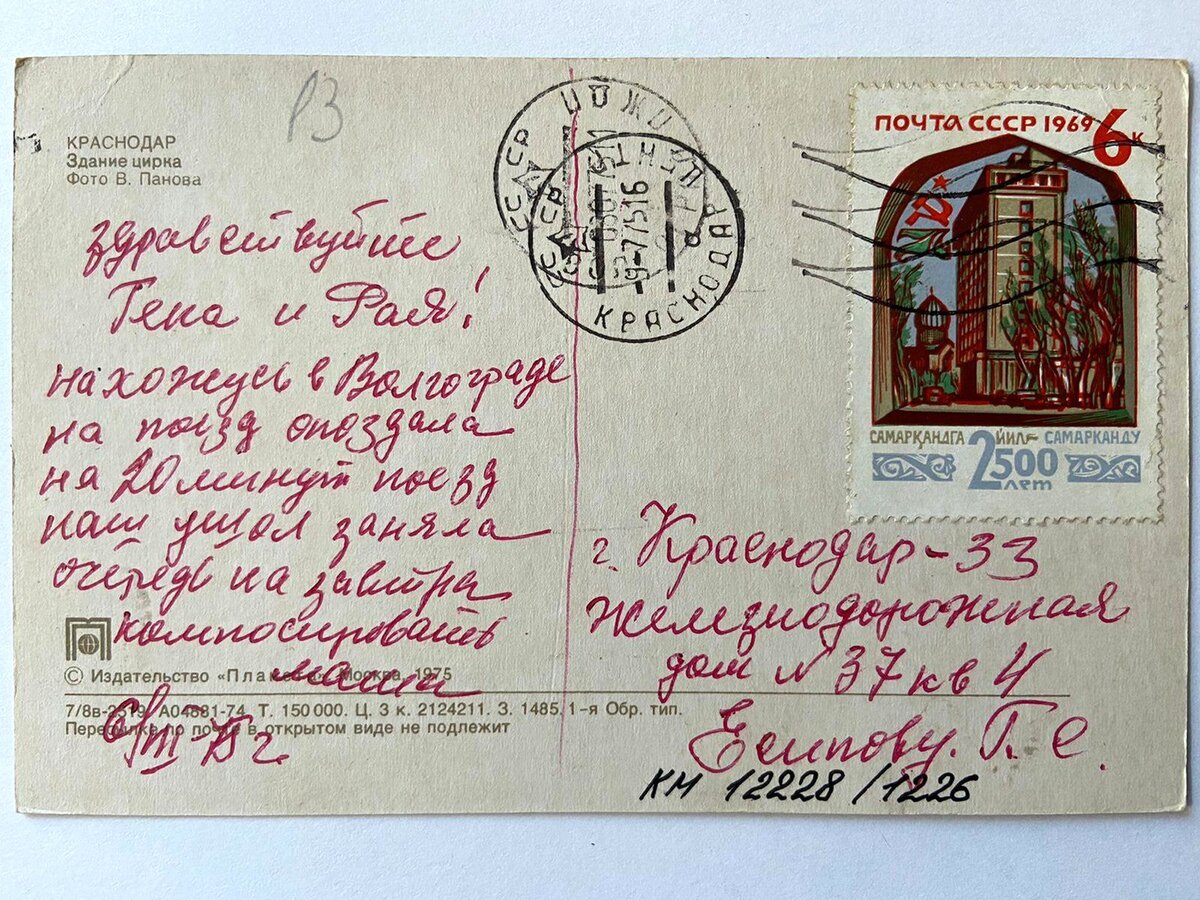 КРАСНОДАР
Здание цирка
Фото В. Панова
здравствуйте
Гена и Рая!
нахожусь в Волгограде
на поезд опоздала
на 20 минут поезд
наш ушол заняла
очередь на завтра
компосировать
маша
Издательство «Плакат» Москва, 1975
7/8в-2519. А04881-74. Т. 150 000. Ц. 3 к. 2124211. З. 1485. 1-я Обр. тип.
Пересылке по почте в открытом виде не подлежит
СССР
КРАСНОДАР
ПОЧТА СССР 1969 6к
САМАРҚАНДГА ЙИЛ – САМАРКАНДУ
2500
лет
г. Краснодар-33
железнодорожная
дом N 37 кв 4
Есипову. Г. С.
КМ 12228/1226